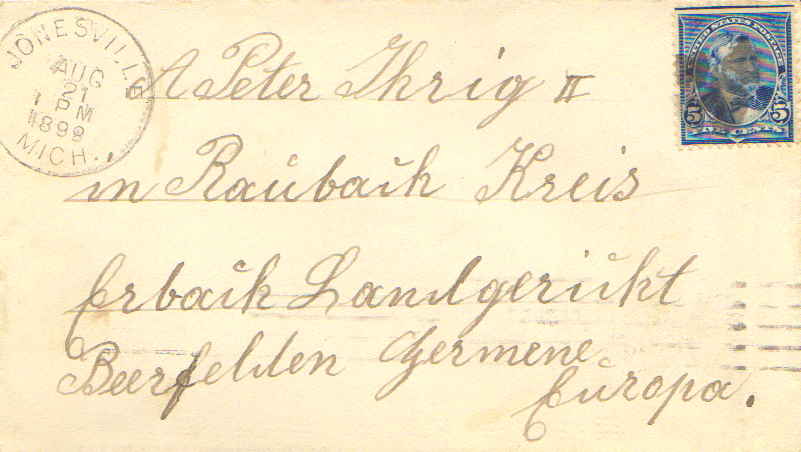 JONESVILLE
AUG
21
1 PM
1899
MICH.
UNITED STATES POSTAGE
5 5
FIVE CENTS
A Peter Ihrig II
in Raubach Kreis
Erbach Landgericht
Beerfelden Germene
Europa.